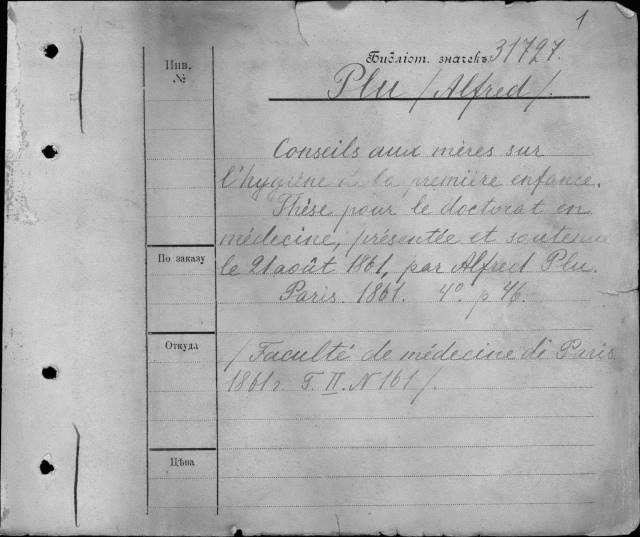 1
Инв. №
Библіот. значекъ 31727.
Plu /Alfred/.
Conseils aux mères sur
l'hygiène de la première enfance.
Thèse pour le doctorat en
médecine, présentée et soutenue
По заказу
le 21 août 1861, par Alfred Plu.
Paris. 1861. 4º. p 46.
Откуда
/Faculté de médecine di Paris
1861 г. T. II. N 161/.
Цѣна